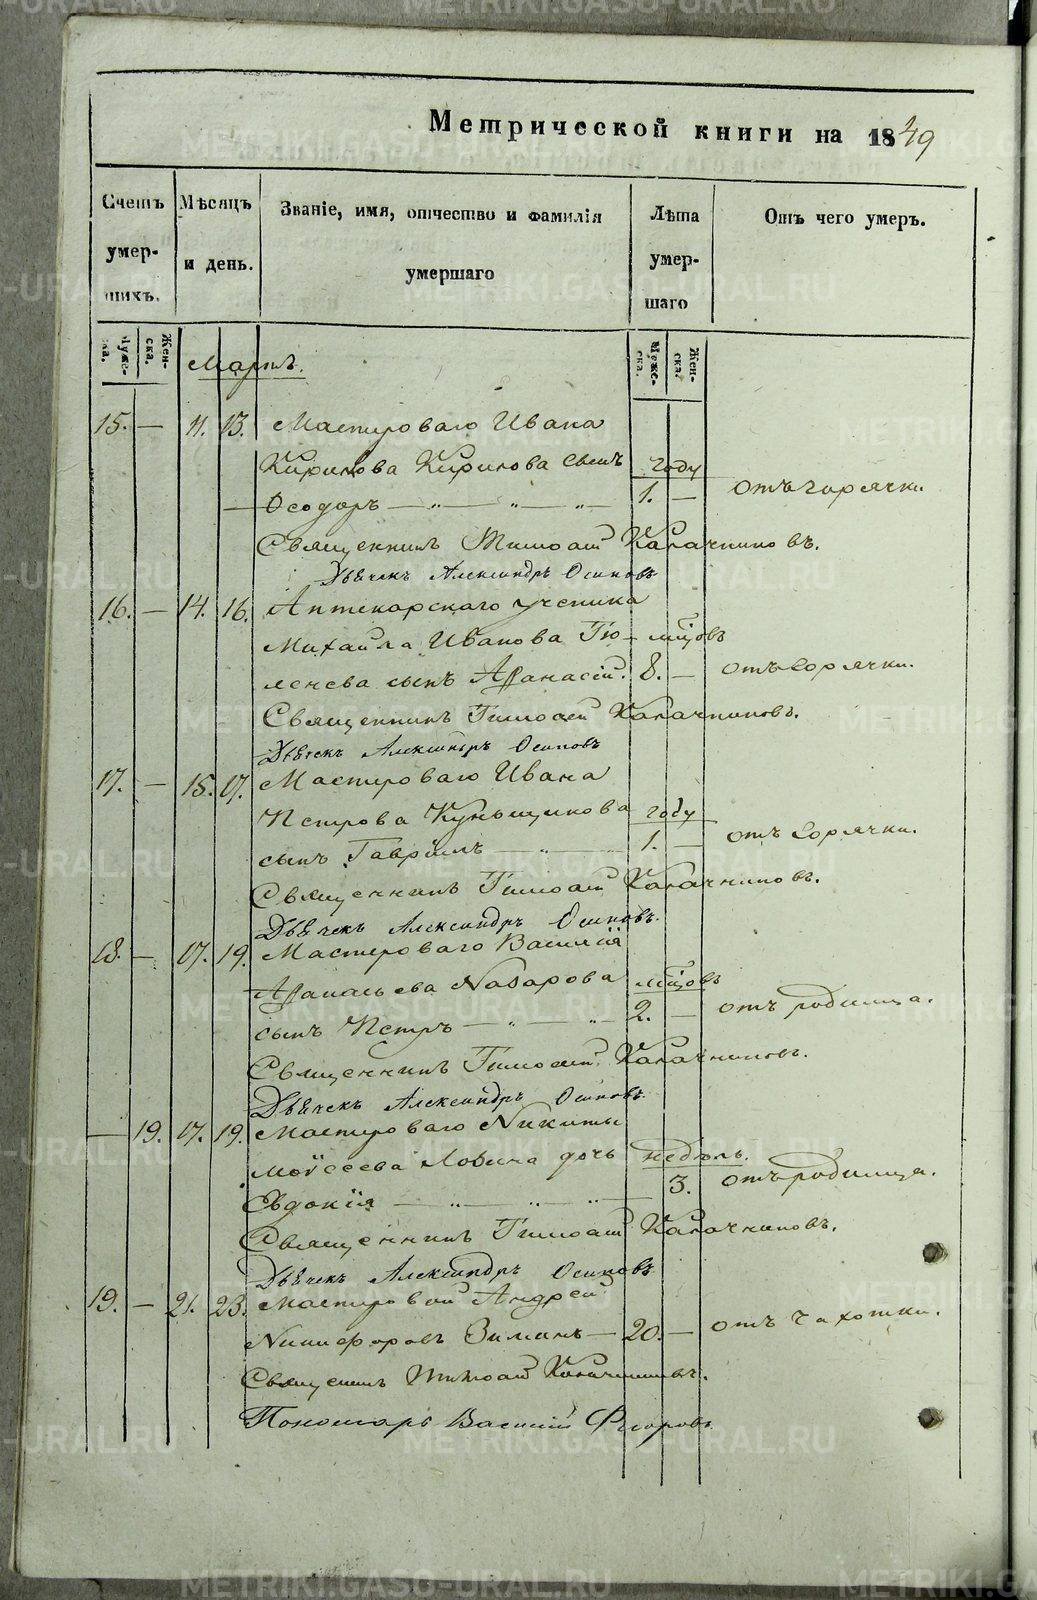 Метрической книги на 1849
Счетъ умер-шихъ.
Мѣсяцъ и день.
Званіе, имя, отчество и фамилія умершаго
Лѣта умер-шаго
Отъ чего умеръ.
Муже-ска.
Жен-ска.
Муже-ска.
Жен-ска.
Мартъ.
15. — 11. 13. Мастероваго Ивана
Кирилова Кирилова сынъ году
Ѳеодоръ — „ — „ — „ — 1. — отъ горячки
Священникъ Тимоѳей Калачниковъ.
Дьячекъ Александръ Осиповъ
16. — 14. 16. Аптекарскаго ученика
Михайла Иванова Тю- мѣсяцовъ
ленева сынъ Аѳанасій. 8. — отъ горячки.
Священникъ Тимоѳей Калачниковъ.
Дьячекъ Александръ Осиповъ
17. — 15. 17. Мастероваго Ивана
Петрова Кунгщикова году
сынъ Гавріилъ — „ — 1. — отъ горячки.
Священникъ Тимоѳей Калачниковъ.
Дьячекъ Александръ Осиповъ.
18. — 17. 19. Мастероваго Василія
Аѳанасьева Назарова мѣсяцовъ
сынъ Петръ — „ — „ 2. — отъ родимца.
Священникъ Тимоѳей Калачниковъ.
Дьячекъ Александръ Осиповъ.
— 19. 17. 19. Мастероваго Никиты
Моѵсеева дочь недѣль.
Евдокія — „ — „ — „ — 3. отъ родимца.
Священникъ Тимоѳей Калачниковъ.
Дьячекъ Александръ Осиповъ
19. — 21. 23. Мастеровой Андрей
Никифоровъ Зиминъ — 20. — отъ чахотки.
Священникъ Тимоѳей Калачниковъ.
Пономарь Василій Флоровъ
METRIKI.GASO-URAL.RU